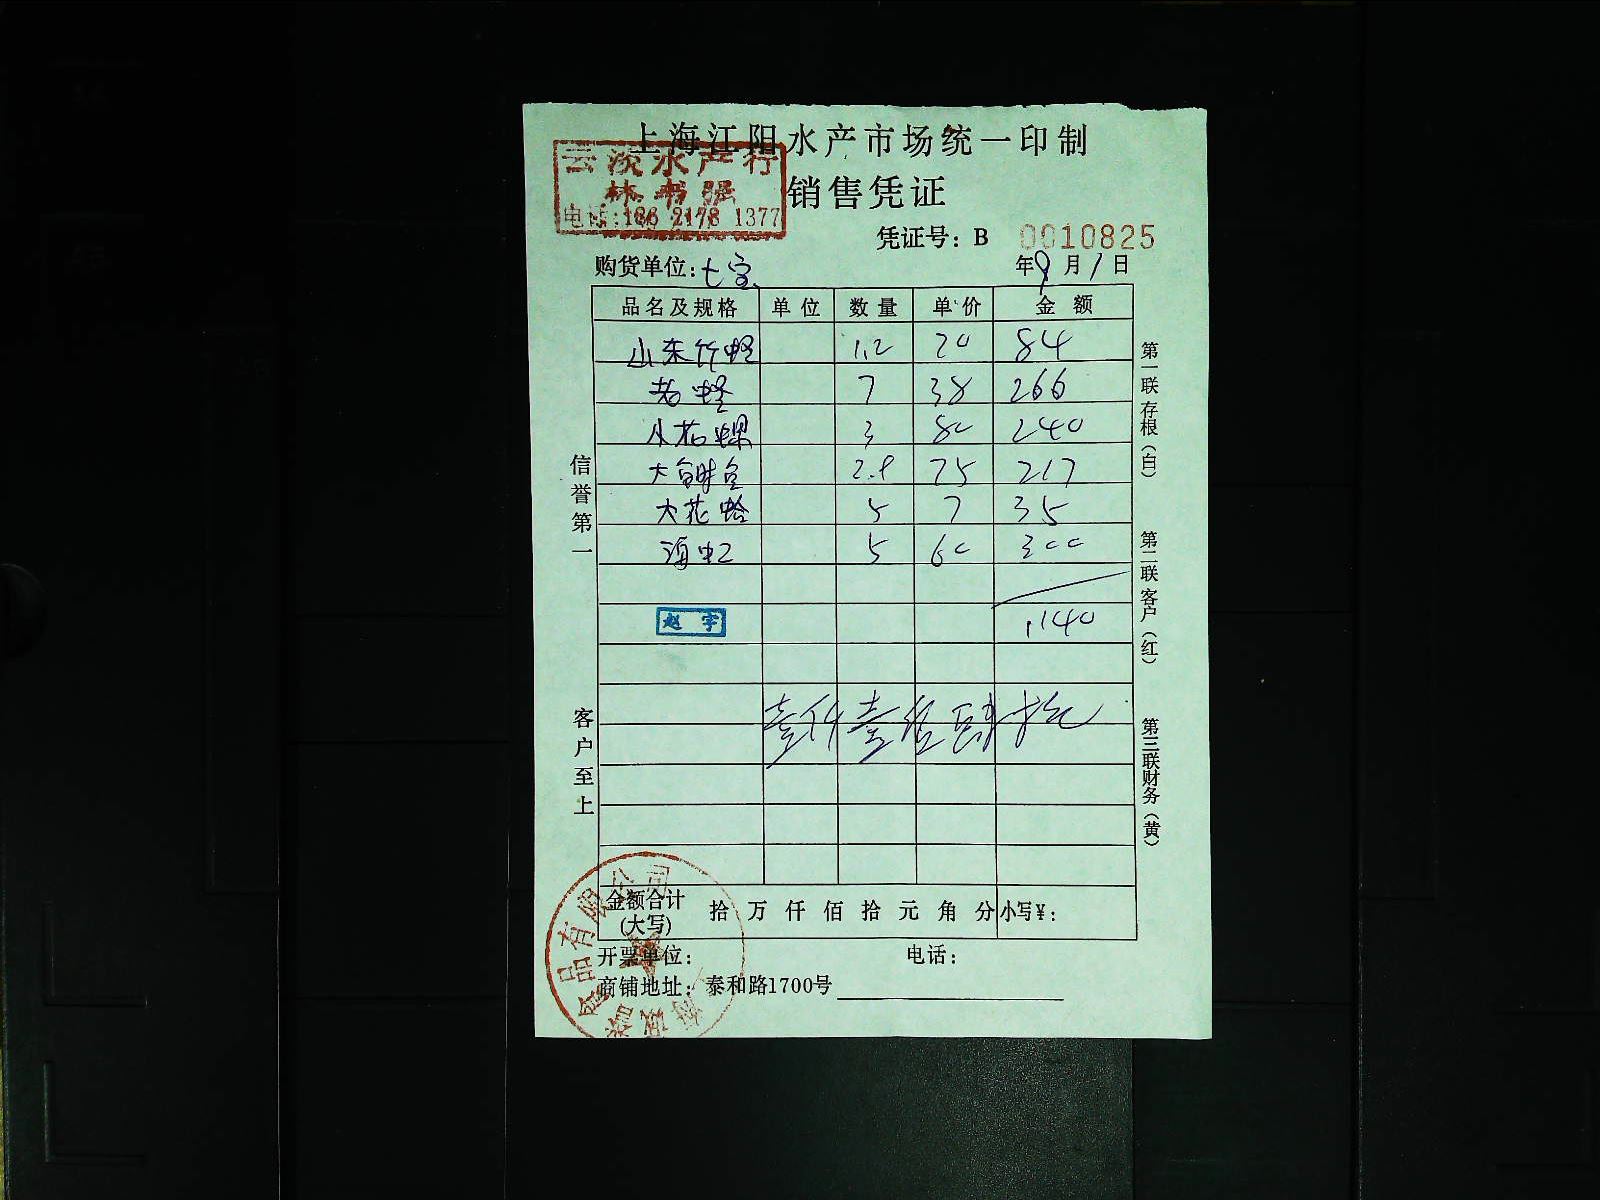 上海江阳水产市场统一印制
云淡水产行
林书强
电话:186 2178 1377
销售凭证
凭证号: B 0010825
购货单位:七宝
年9月1日
品名及规格 单位 数量 单价 金额
山东竹蛏 1.2 70 84
老蛏 7 38 266
小花螺 3 80 240
大 2.8 75 217
大花蛤 5 7 35
海虹 5 60 300
赵宇
1140
壹仟壹佰肆拾元
信誉第一
客户至上
第一联存根(白)
第二联客户(红)
第三联财务(黄)
金额合计(大写) 拾万仟佰拾元角分 小写¥:
开票单位: 电话:
商铺地址: 泰和路1700号
品有限公司